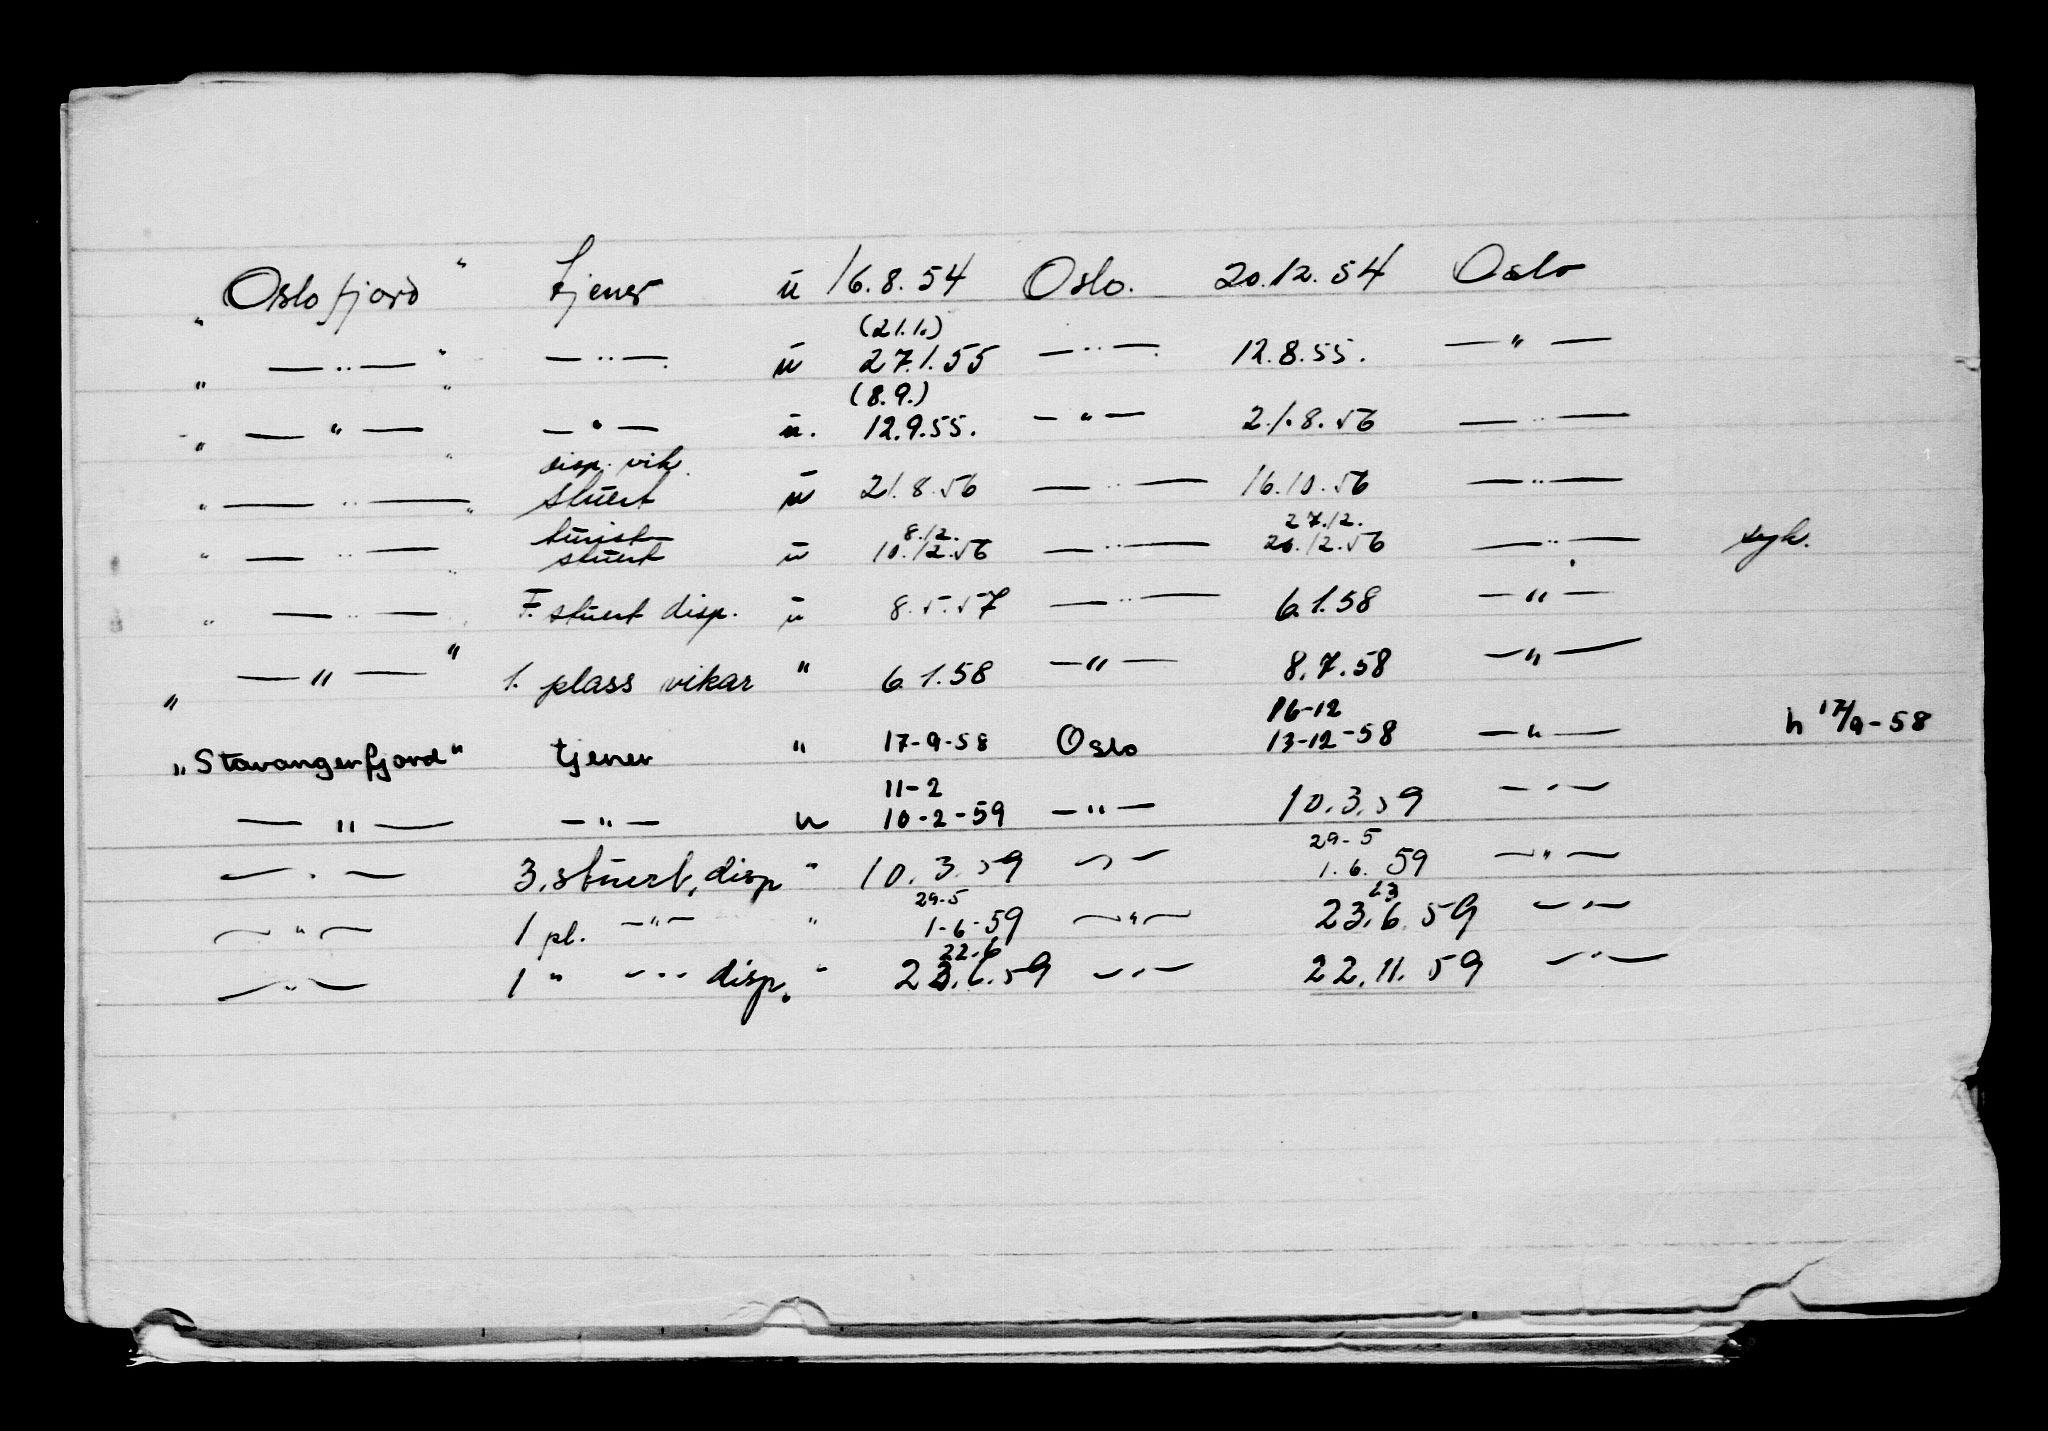 „Oslofjord" tjener u 16.8.54 Oslo. 20.12.54 Oslo
(21.1.)
„ — " — " — " — u 27.1.55 — " — 12.8.55. — " —
(8.9.)
„ — " — " — " — u. 12.9.55. — " — 21.8.56 — " —
disp. vik.
„ — " — " stuert u 21.8.56 — " — 16.10.56 — " —
turist 8.12. 27.12.
„ — " — " stuert u 10.12.56 — " — 26.12.56 — " — syk.
„ — " — " F. stuert disp. u 8.5.57 — " — 6.1.58 — " —
„ — " — " 1. plass vikar " 6.1.58 — " — 8.7.58 — " —
16-12
„Stavangerfjord" tjener " 17-9-58 Oslo 13-12-58 — " — h 17/9-58
11-2
— " — — " — u 10-2-59 — " — 10.3.59 — " —
29-5
— " — 3. stuert, disp " 10.3.59 — " — 1.6.59 — " —
29-5 23
— " — 1 pl. — " — " 1-6-59 — " — 23.6.59 — " —
22.6
— " — 1 " — " — disp. " 23.6.59 — " — 22.11.59 — " —